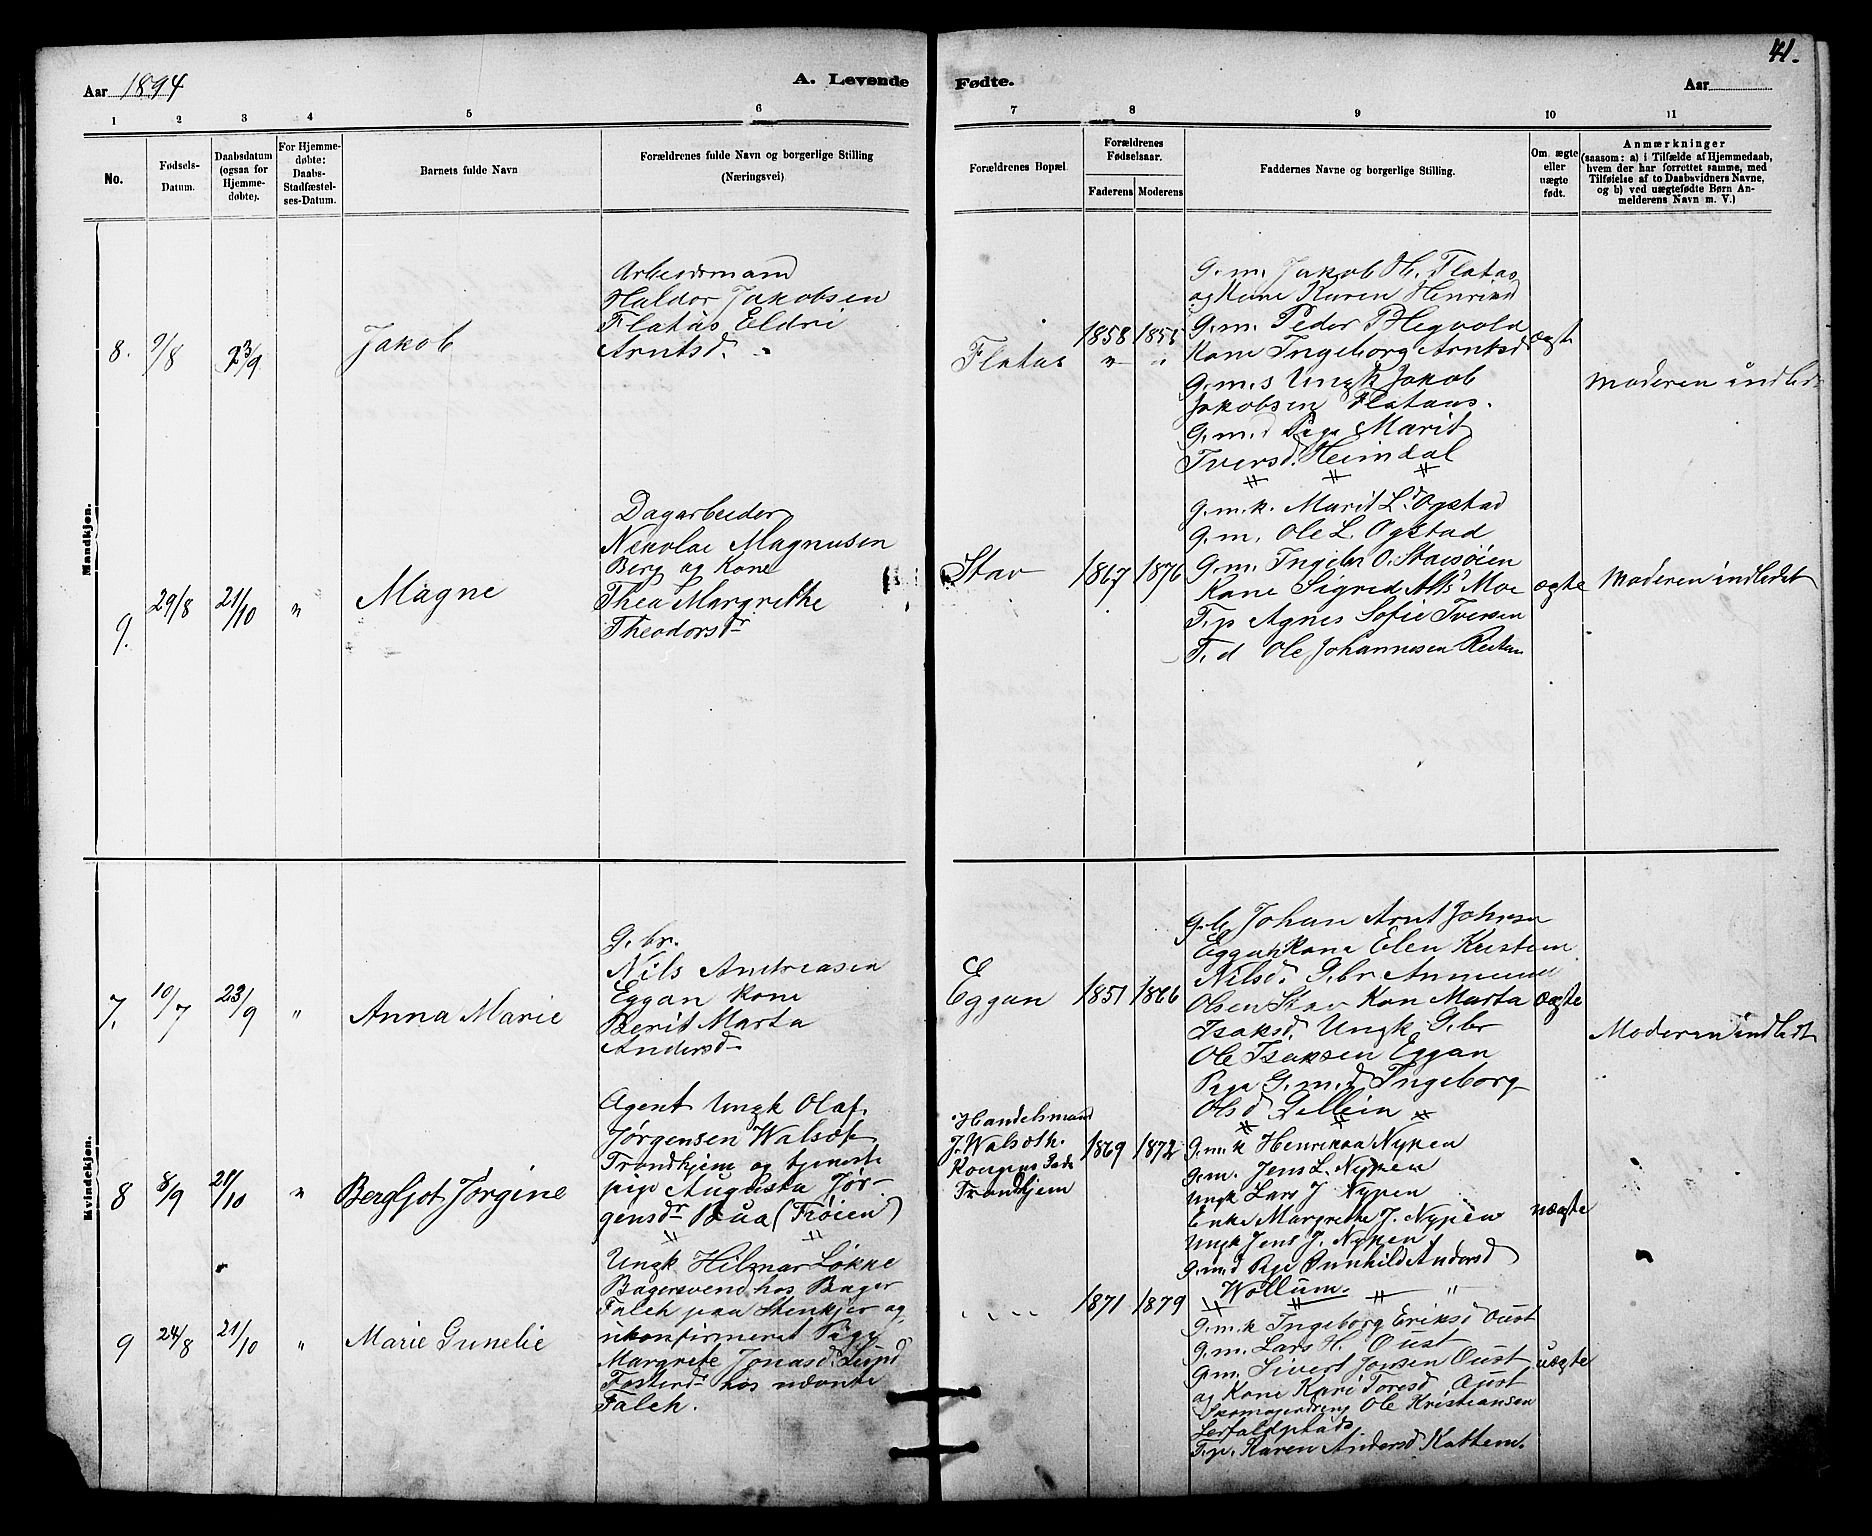 41.
Aar 1894
A. Levende
Fødte.
Aar
1
2
3
4
5
6
7
8
9
10
11
No.
Fødsels-
Datum.
Daabsdatum
(ogsaa for
Hjemme-
døbte).
For Hjemme-
døbte:
Daabs-
Stadfæstel-
ses-Datum.
Barnets fulde Navn
Forældrenes fulde Navn og borgerlige Stilling
(Næringsvei)
Forældrenes Bopæl.
Forældrenes
Fødselsaar.
Faderens
Moderens
Faddernes Navne og borgerlige Stilling.
Om ægte
eller
uægte
født.
Anmærkninger
(saasom: a) i Tilfælde af Hjemmedaab,
hvem der har forrettet samme, med
Tilføielse af to Daabsvidners Navne,
og b) ved uægtefødte Børn An-
melderens Navn m. V.)
Mandkjøn.
8.
9/8
23/9
Jakob
Arbeidsmand
Haldor Jakobsen
Flatås Eldri
Arntsd.
Flatas
1858
1855
G.m. Jakob H. Flatas
og Kone Karen Henriksd
G.m. Peder P Hegvold
Kone Ingeborg Arntsd
G.m.s Ungk Jakob
Jakobsen Flataas.
G.m.d Pige Marit
Iversd. Heimdal
ægte
Moderen indledt
9.
29/8
21/10
"
Magne
Dagarbeider
Nekolai Magnusen
Berg og Kone
Thea Margrethe
Theodorsdr
Stav
1867
1876
G.m.k. Marit L.d Ogstad
G.m. Ole L. Ogstad
G.m. Ingebr O. Stavsøien
Kone Sigrid Moe
T.p Agnes Sofie Iversen
T.d Ole Johannesen
ægte
Moderen indledet
Kvindekjøn.
7.
10/7
23/9
"
Anna Marie
G. br.
Nils Andreasen
Eggan Kone
Berit Marta
Andersd
Eggan
1851
1866
G.b. Johan Arnt Johnsen
Eggan Kone Elen Kristine
Nilsd. G.br
Olsen Stav Kon Marta
Isaksd. Ungk G.br
Ole Isaksen Eggan
Pige G.m.d Ingeborg
Olsd Rellein
ægte
Moderen indledt
8
8/9
21/10
"
Bergljot Jørgine
Agent Ungk Olaf
Jørgensen Walsøt
Trondhjem og tjeneste
pige Augusta Jør-
gensdr Båa (Trøien)
Handelsmand
J. Walsøth.
Kongens Gade
Trondhjem
1869
1872
G.m.k Henrikaa Nypen
G.m. Jens L. Nypen
Ungk Lars J Nypen
Enke Margrethe J. Nypen
Ungk Jens J. Nypen
G.m.d Pige Gunhild Andersd
Wollum.
uægte
9
24/8
21/10
"
Marie Gunelie
Ungk Hilmar Løkke
Bagersvend hos Bager
Falch paa Stenkjer og
ukonfirmeret Pige
Margrete Jonasd. Lund
Fosterdr hos nævnte
Falch.
1871
1879
G.m.k Ingeborg Eriksd Oust
G.m. Lars H. Oust
G.m. Sivert Jonsen Oust
og Kone Kari Toresd Oust
Skomagerdreng Ole Kristiansen
Lerfaldplads
T.p. Karen Andersd Kattem.
uægte